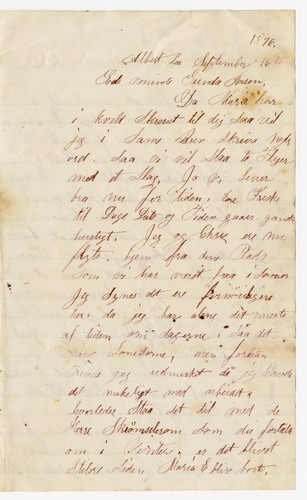 1896.
Albert Lea September 16
Gode veninde Gunda
Da Maria har
i kveld Skrevet til dig Saa vil
jeg i Samme Brev Skrive nogle
ord. Saa vi vil Slaa to Fluer
med et Slag. Ja vi lever
bra nu for tiden, Ere Friske
til Dags Dato og Tiden gaaer ganske
hurtigt. Jeg og Chris er nu
flyt. hjem fra den Plads
Som vi har været paa i Sommer
Jeg Synes det er
her. da jeg har alene det meste
af tiden om dagerne. Saa det
er Lonesome, men foresten
jeg udmerket da jeg havde
det makeligt med arbeidet.
hvorledes Staa det til med de
Herre Strömselrom Som du fortalte
om i Vinter, er det blevet
Stelere Siden Maria E blev bort.